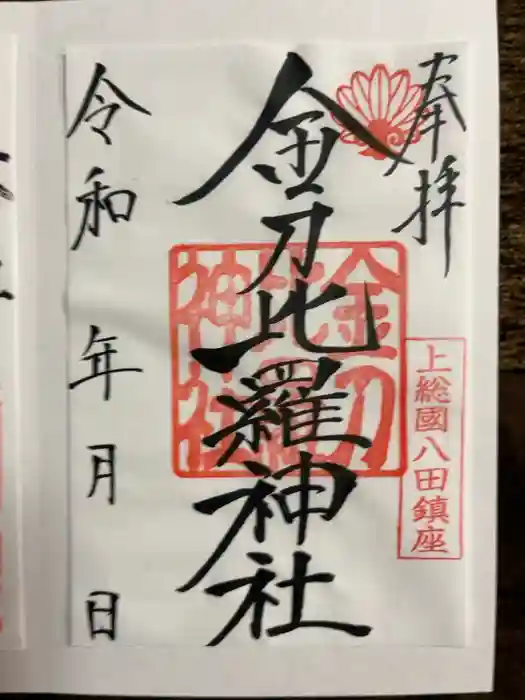 奉拝
上総國八田鎮座
金刀比羅神社
金刀比羅神社
令和 年 月 日